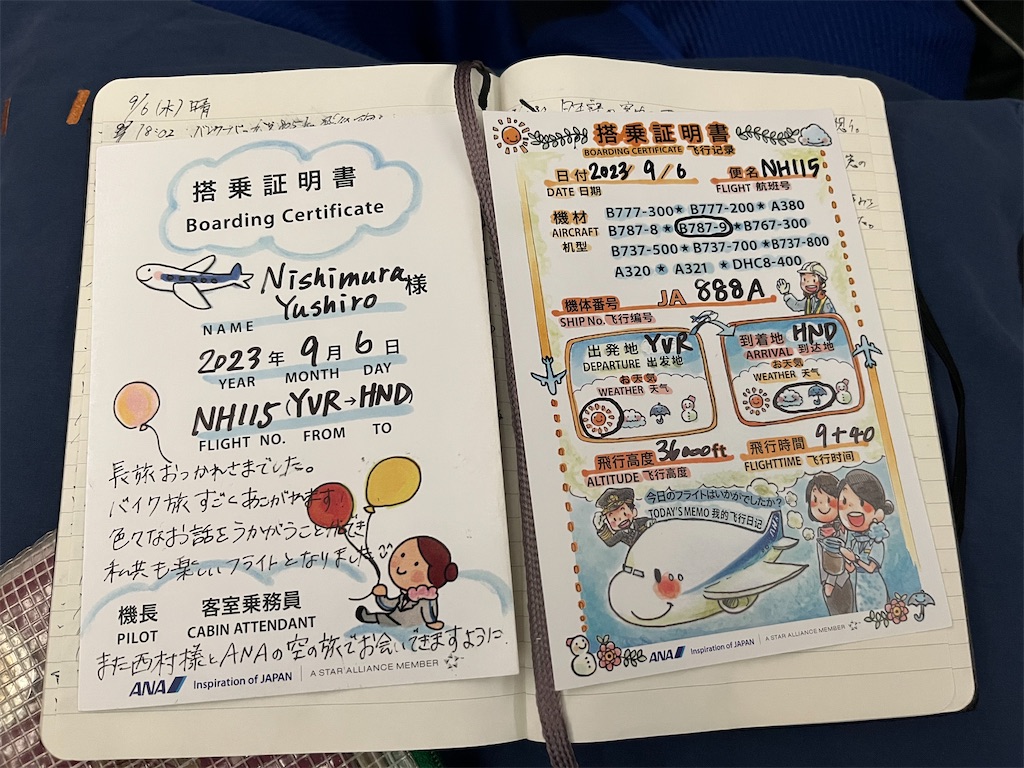 9/6 (水) 晴
18:02 バンクーバー
搭乗証明書
Boarding Certificate
Nishimura
Yushiro 様
NAME
2023 年 9 月 6 日
YEAR MONTH DAY
NH115 (YVR→HND)
FLIGHT NO. FROM TO
長旅おつかれさまでした。
バイク旅すごくあこがれます!
色々なお話をうかがうことができ
私共も楽しいフライトとなりました
機長 客室乗務員
PILOT CABIN ATTENDANT
また西村様とANAの空の旅でお会いできますように.
ANA Inspiration of JAPAN A STAR ALLIANCE MEMBER
搭乗証明書
BOARDING CERTIFICATE 飞行记录
日付 2023 9/6 便名 NH115
DATE 日期 FLIGHT 航班号
機材 B777-300★ B777-200★ A380
AIRCRAFT B787-8 ★ B787-9 ★ B767-300
机型 B737-500★ B737-700 ★B737-800
A320 ★ A321 ★ DHC8-400
機体番号 JA 888A
SHIP No. 飞行编号
出発地 YVR
DEPARTURE 出发地
お天気
WEATHER 天气
到着地 HND
ARRIVAL 到达地
お天気
WEATHER 天气
飛行高度 36000ft
ALTITUDE 飞行高度
飛行時間 9+40
FLIGHTTIME 飞行时间
今日のフライトはいかがでしたか?
TODAY'S MEMO 我的飞行日记
ANA Inspiration of JAPAN A STAR ALLIANCE MEMBER